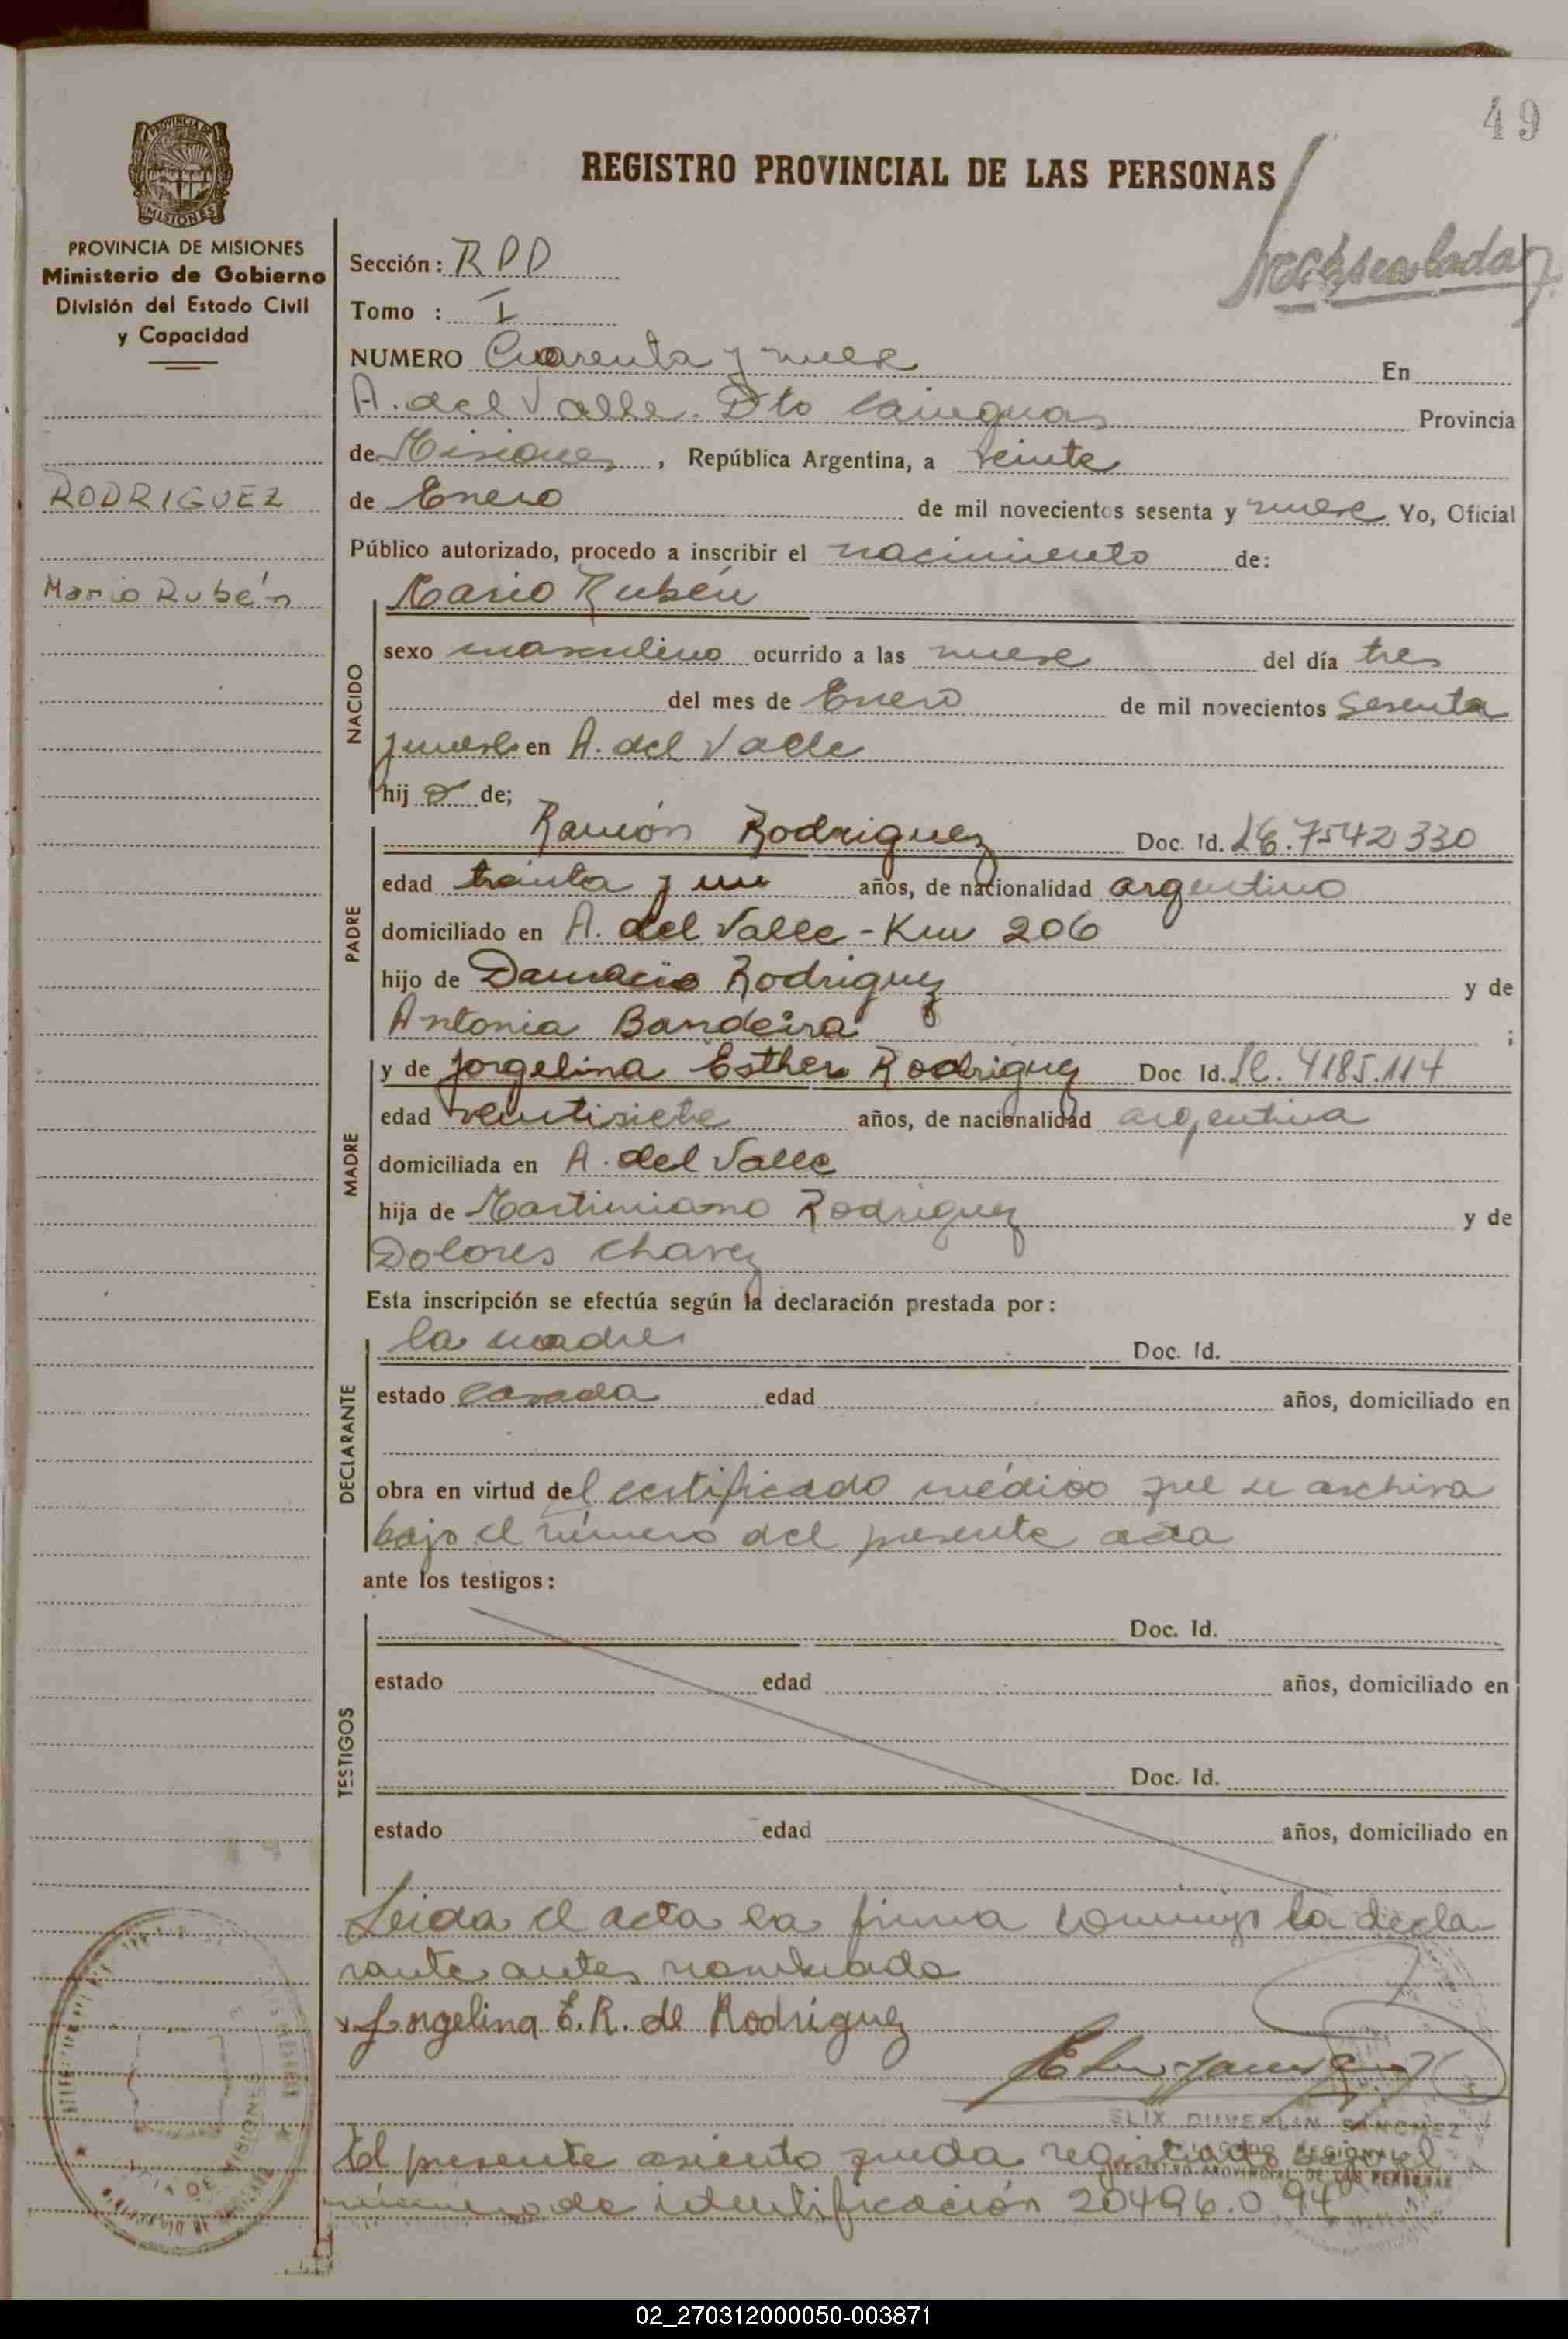 49
REGISTRO PROVINCIAL DE LAS PERSONAS
PROVINCIA DE
MISIONES
PROVINCIA DE MISIONES
Ministerio de Gobierno
División del Estado Civil
y Capacidad
RODRIGUEZ
Mario Rubén
Sección: RPD
Tomo : I
NUMERO Cuarenta y nueve En
A. del Valle. Dto Cainguas Provincia
de Misiones, República Argentina, a veinte
de Enero de mil novecientos sesenta y nueve Yo, Oficial
Público autorizado, procedo a inscribir el nacimiento de:
Mario Rubén
NACIDO
sexo masculino ocurrido a las nueve del día tres
del mes de Enero de mil novecientos sesenta
y nueve en A. del Valle
hijo de;
PADRE
Ramón Rodriguez Doc. Id. 7542330
edad treinta y un años, de nacionalidad argentino
domiciliado en A. del Valle - Km 206
hijo de Damacio Rodriguez y de
Antonia Bandeira ;
MADRE
y de Jorgelina Esther Rodriguez Doc Id. 4185.114
edad veintisiete años, de nacionalidad argentina
domiciliada en A. del Valle
hija de Martiniano Rodriguez y de
Dolores Chavez
Esta inscripción se efectúa según la declaración prestada por:
DECLARANTE
la madre Doc. Id.
estado casada edad años, domiciliado en
obra en virtud del certificado médico que se archiva
bajo el número del presente acta
ante los testigos:
TESTIGOS
Doc. Id.
estado edad años, domiciliado en
Doc. Id.
estado edad años, domiciliado en
Leida el acta la firma conmigo la decla
rante antes nombrada
x Jorgelina E. R. de Rodriguez
SANCHEZ
REGIONAL
REGISTRO PROVINCIAL DE LAS PERSONAS
El presente asiento queda registrado bajo el
número de identificación 20496.094
DE MISIONES
02_270312000050-003871